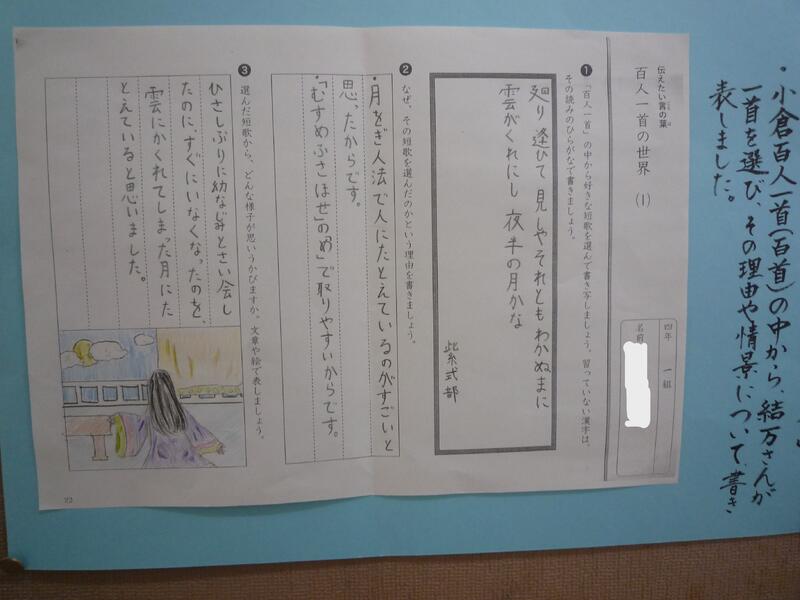 ・小倉百人一首(百首)の中から、結万さんが
一首を選び、その理由や情景について、書き
表しました。
伝えたい言の葉
百人一首の世界 (1)
四年
一組
名前
❶ 「百人一首」の中から好きな短歌を選んで書き写しましょう。習っていない漢字は、
その読みのひらがなで書きましょう。
廻り逢ひて 見しやそれとも わかぬまに
雲がくれにし 夜半の月かな
紫式部
❷ なぜ、その短歌を選んだのかという理由を書きましょう。
・月をぎ人法で人にたとえているのがすごいと
思ったからです。
・「むすめふさほせ」の「め」で取りやすいからです。
❸ 選んだ短歌から、どんな様子が思いうかびますか。文章や絵で表しましょう。
ひさしぶりに幼なじみとさい会し
たのに、すぐにいなくなったのを、
雲にかくれてしまった月にた
とえていると思いました。
23